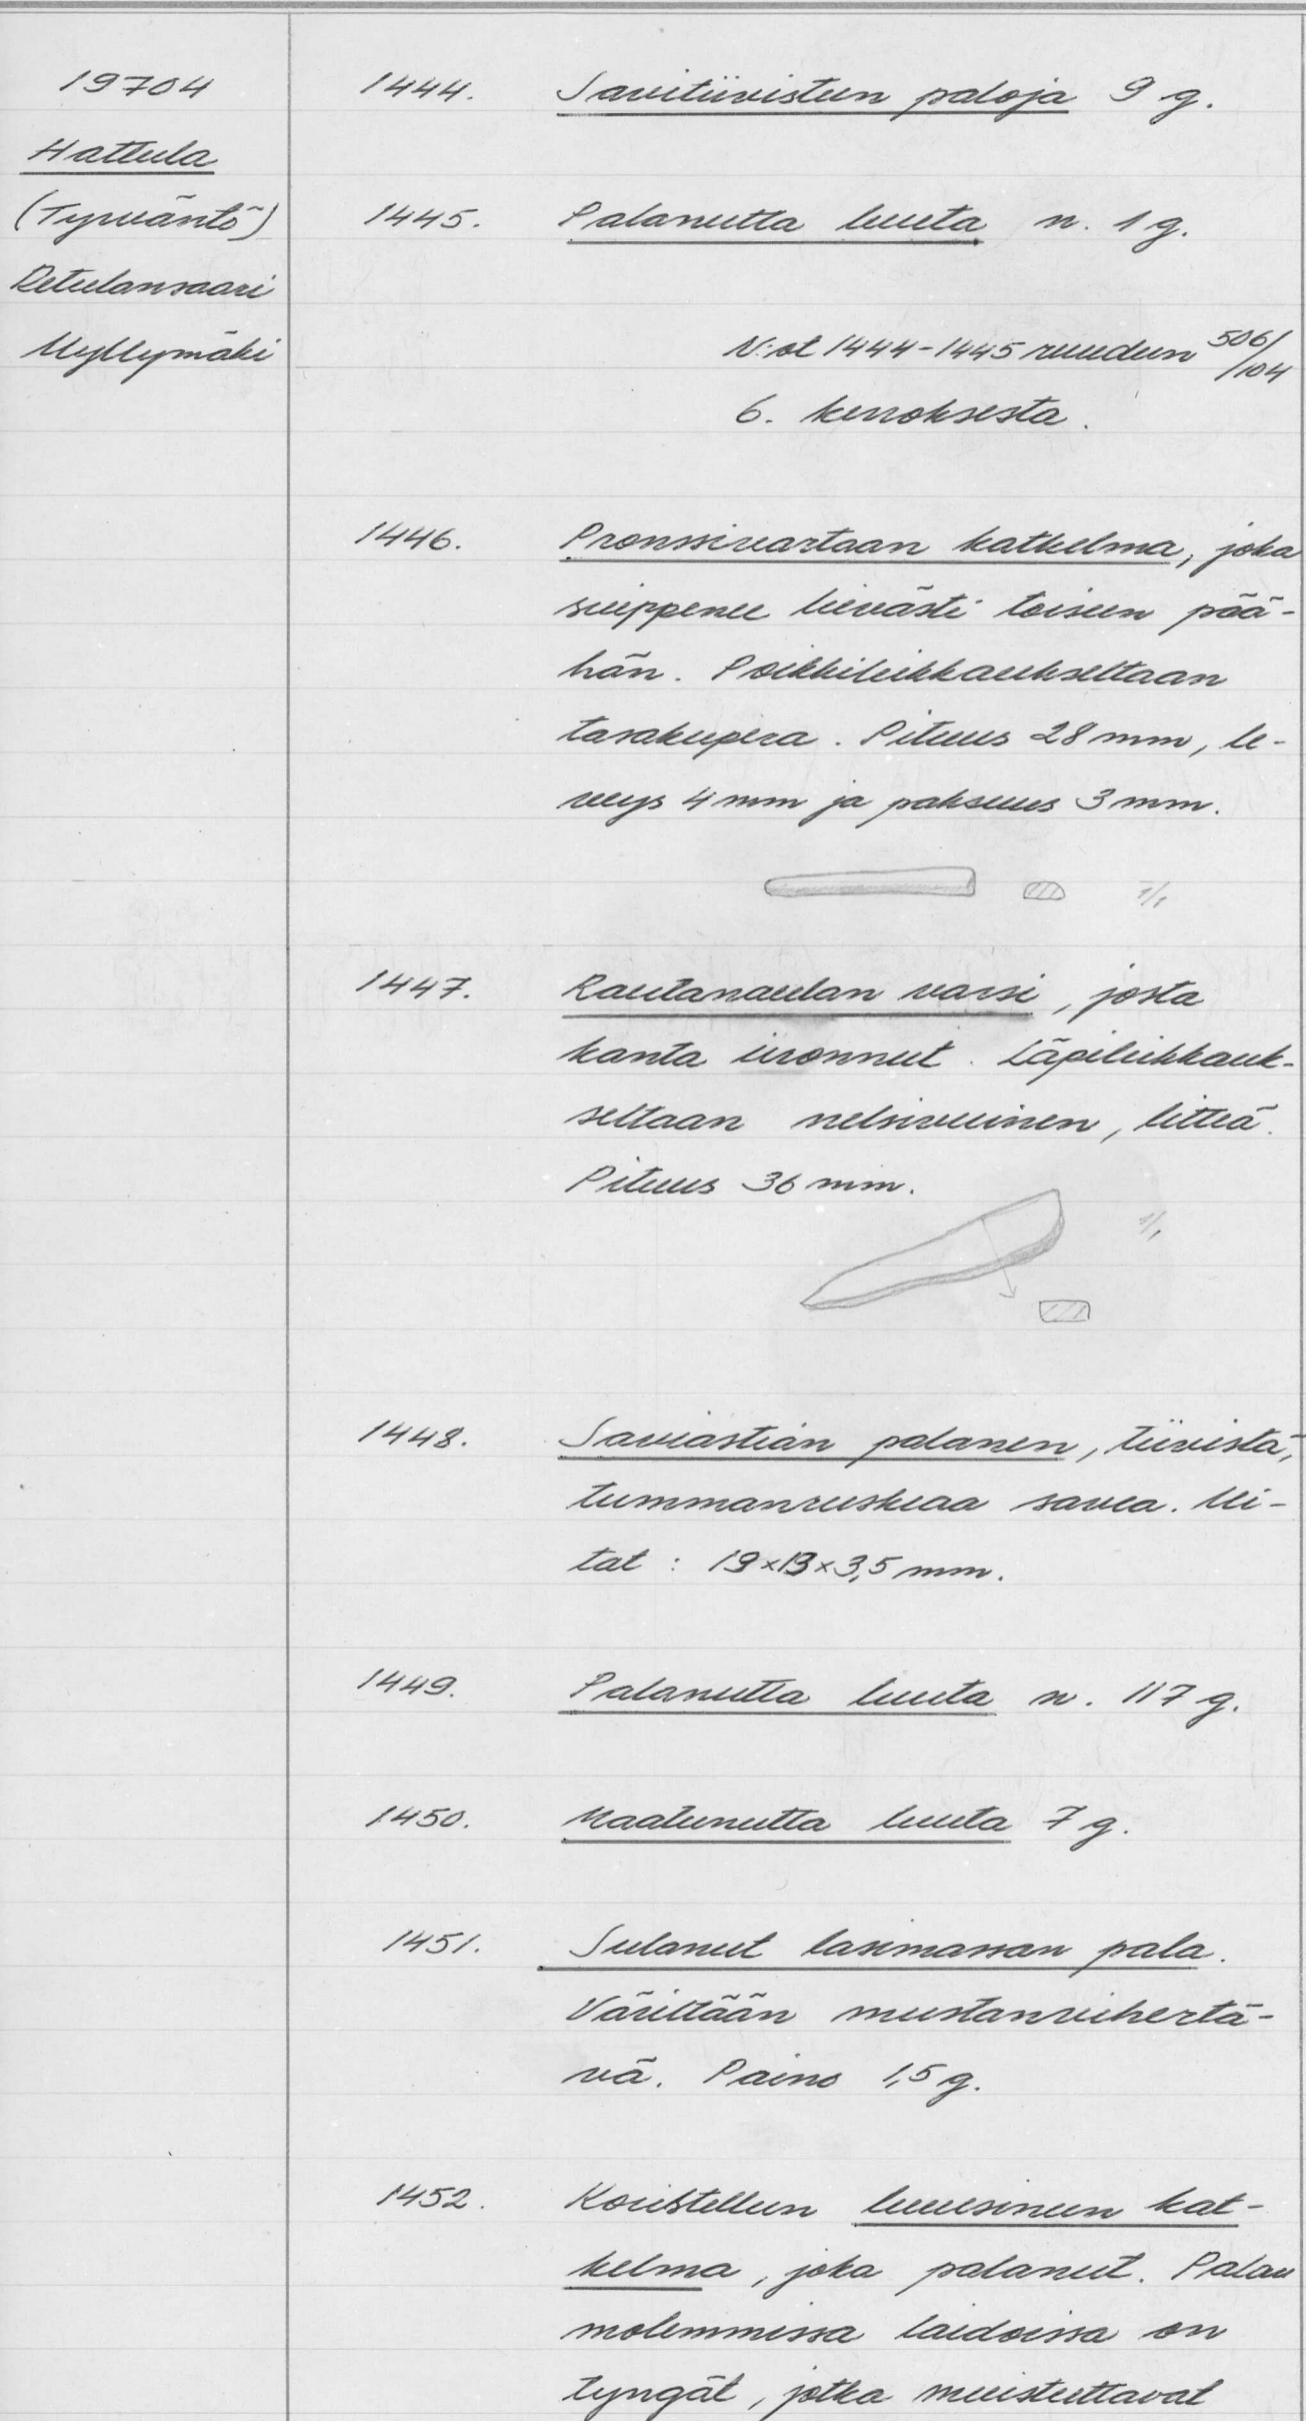 19704
Hattula
(Tyrväntö)
Retulansaari
Myllymäki
1444. Savitiivisteen paloja 9 g.
1445. Palanutta luuta n. 1 g.
N:ot 1444-1445 ruudun 506/104
6. kerroksesta.
1446. Pronssivartaan katkelma, joka
suippenee lievästi toiseen pää-
hän. Poikkileikkaukseltaan
tasakupera. Pituus 28 mm, le-
veys 4 mm ja paksuus 3 mm.
1/1
1447. Rautanaulan varsi, josta
kanta irronnut. Läpileikkauk-
seltaan nelisivuinen, litteä.
Pituus 36 mm.
1/1
1448. Saviastian palanen, tiivistä,
tummanruskeaa savea. Mi-
tat : 19x13x3,5 mm.
1449. Palanutta luuta n. 117 g.
1450. Maatunutta luuta 7 g.
1451. Sulanut lasimassan pala.
Väriltään mustanvihertä-
vä. Paino 1,5 g.
1452. Koristellun luuesineen kat-
kelma, joka palanut. Palan
molemmissa laidoissa on
tyngät, jotka muistuttavat